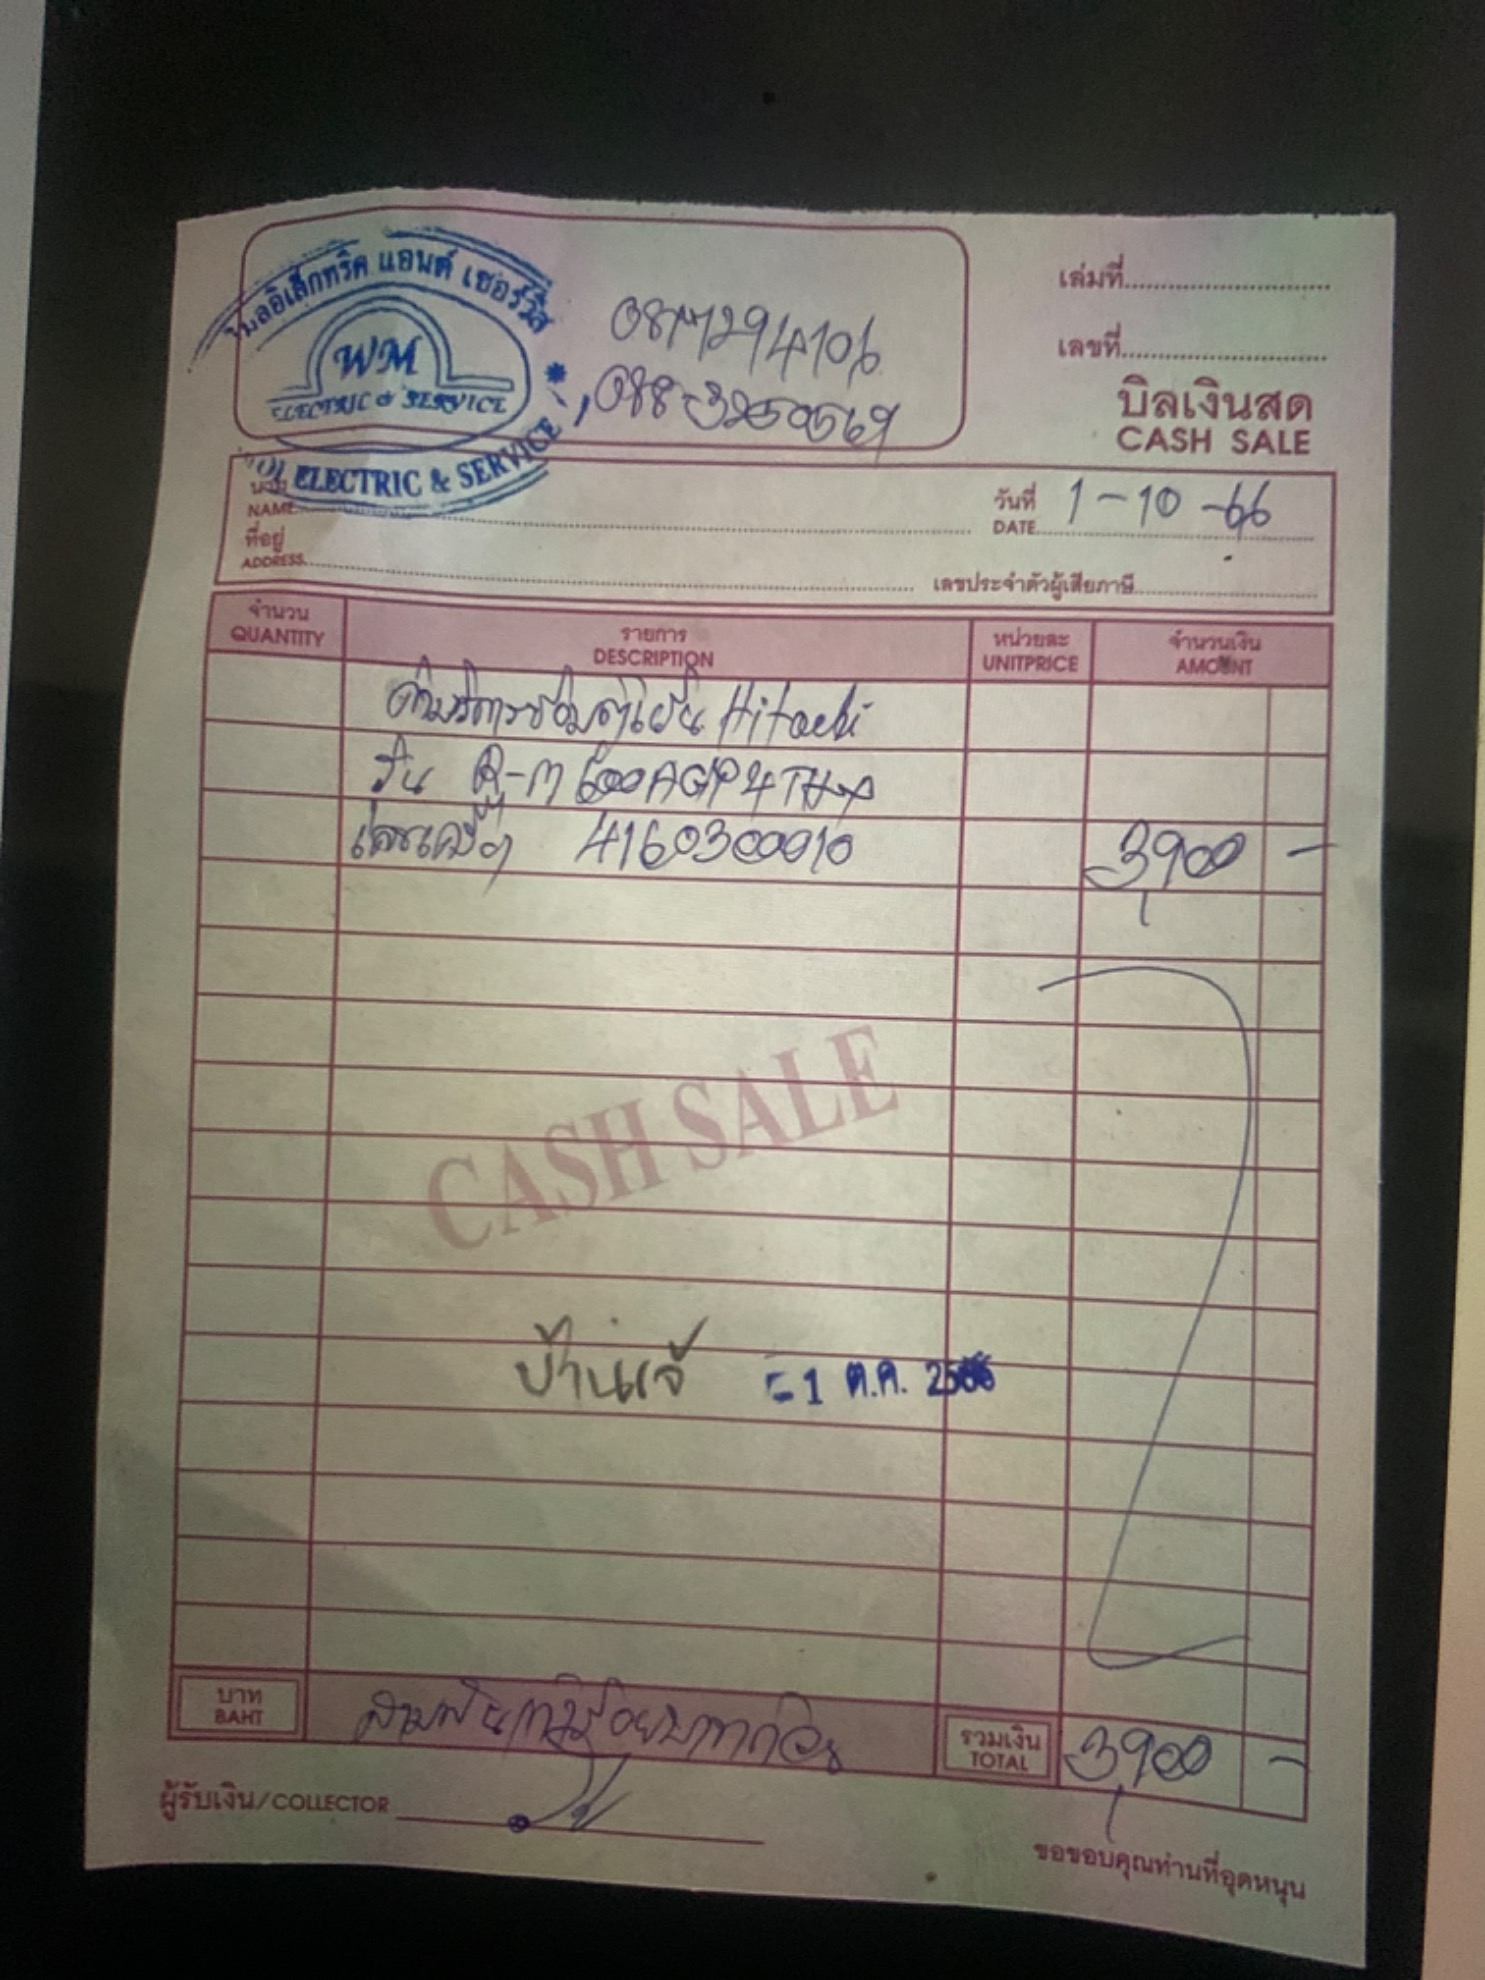 แอนด์ เซอร์วิส
WM
ELECTRIC & SERVICE
ELECTRIC & SERVICE
088-3250569
เล่มที่
เลขที่
บิลเงินสด
CASH SALE
นาม
NAME
วันที่ 1-10-66
DATE
ที่อยู่
ADDRESS
เลขประจำตัวผู้เสียภาษี
จำนวน รายการ หน่วยละ จำนวนเงิน
QUANTITY DESCRIPTION UNITPRICE AMOUNT
ค่าบริการซ่อมตู้เย็น Hitachi
รุ่น R-M600AGP4THX
เลขเครื่อง 4160300010 3,900 -
CASH SALE
บ้านแจ้ - 1 ต.ค. 2566
บาท
BAHT
สามพันเก้าร้อยบาทถ้วน
รวมเงิน
TOTAL
3,900 -
ผู้รับเงิน/COLLECTOR
ขอขอบคุณท่านที่อุดหนุน